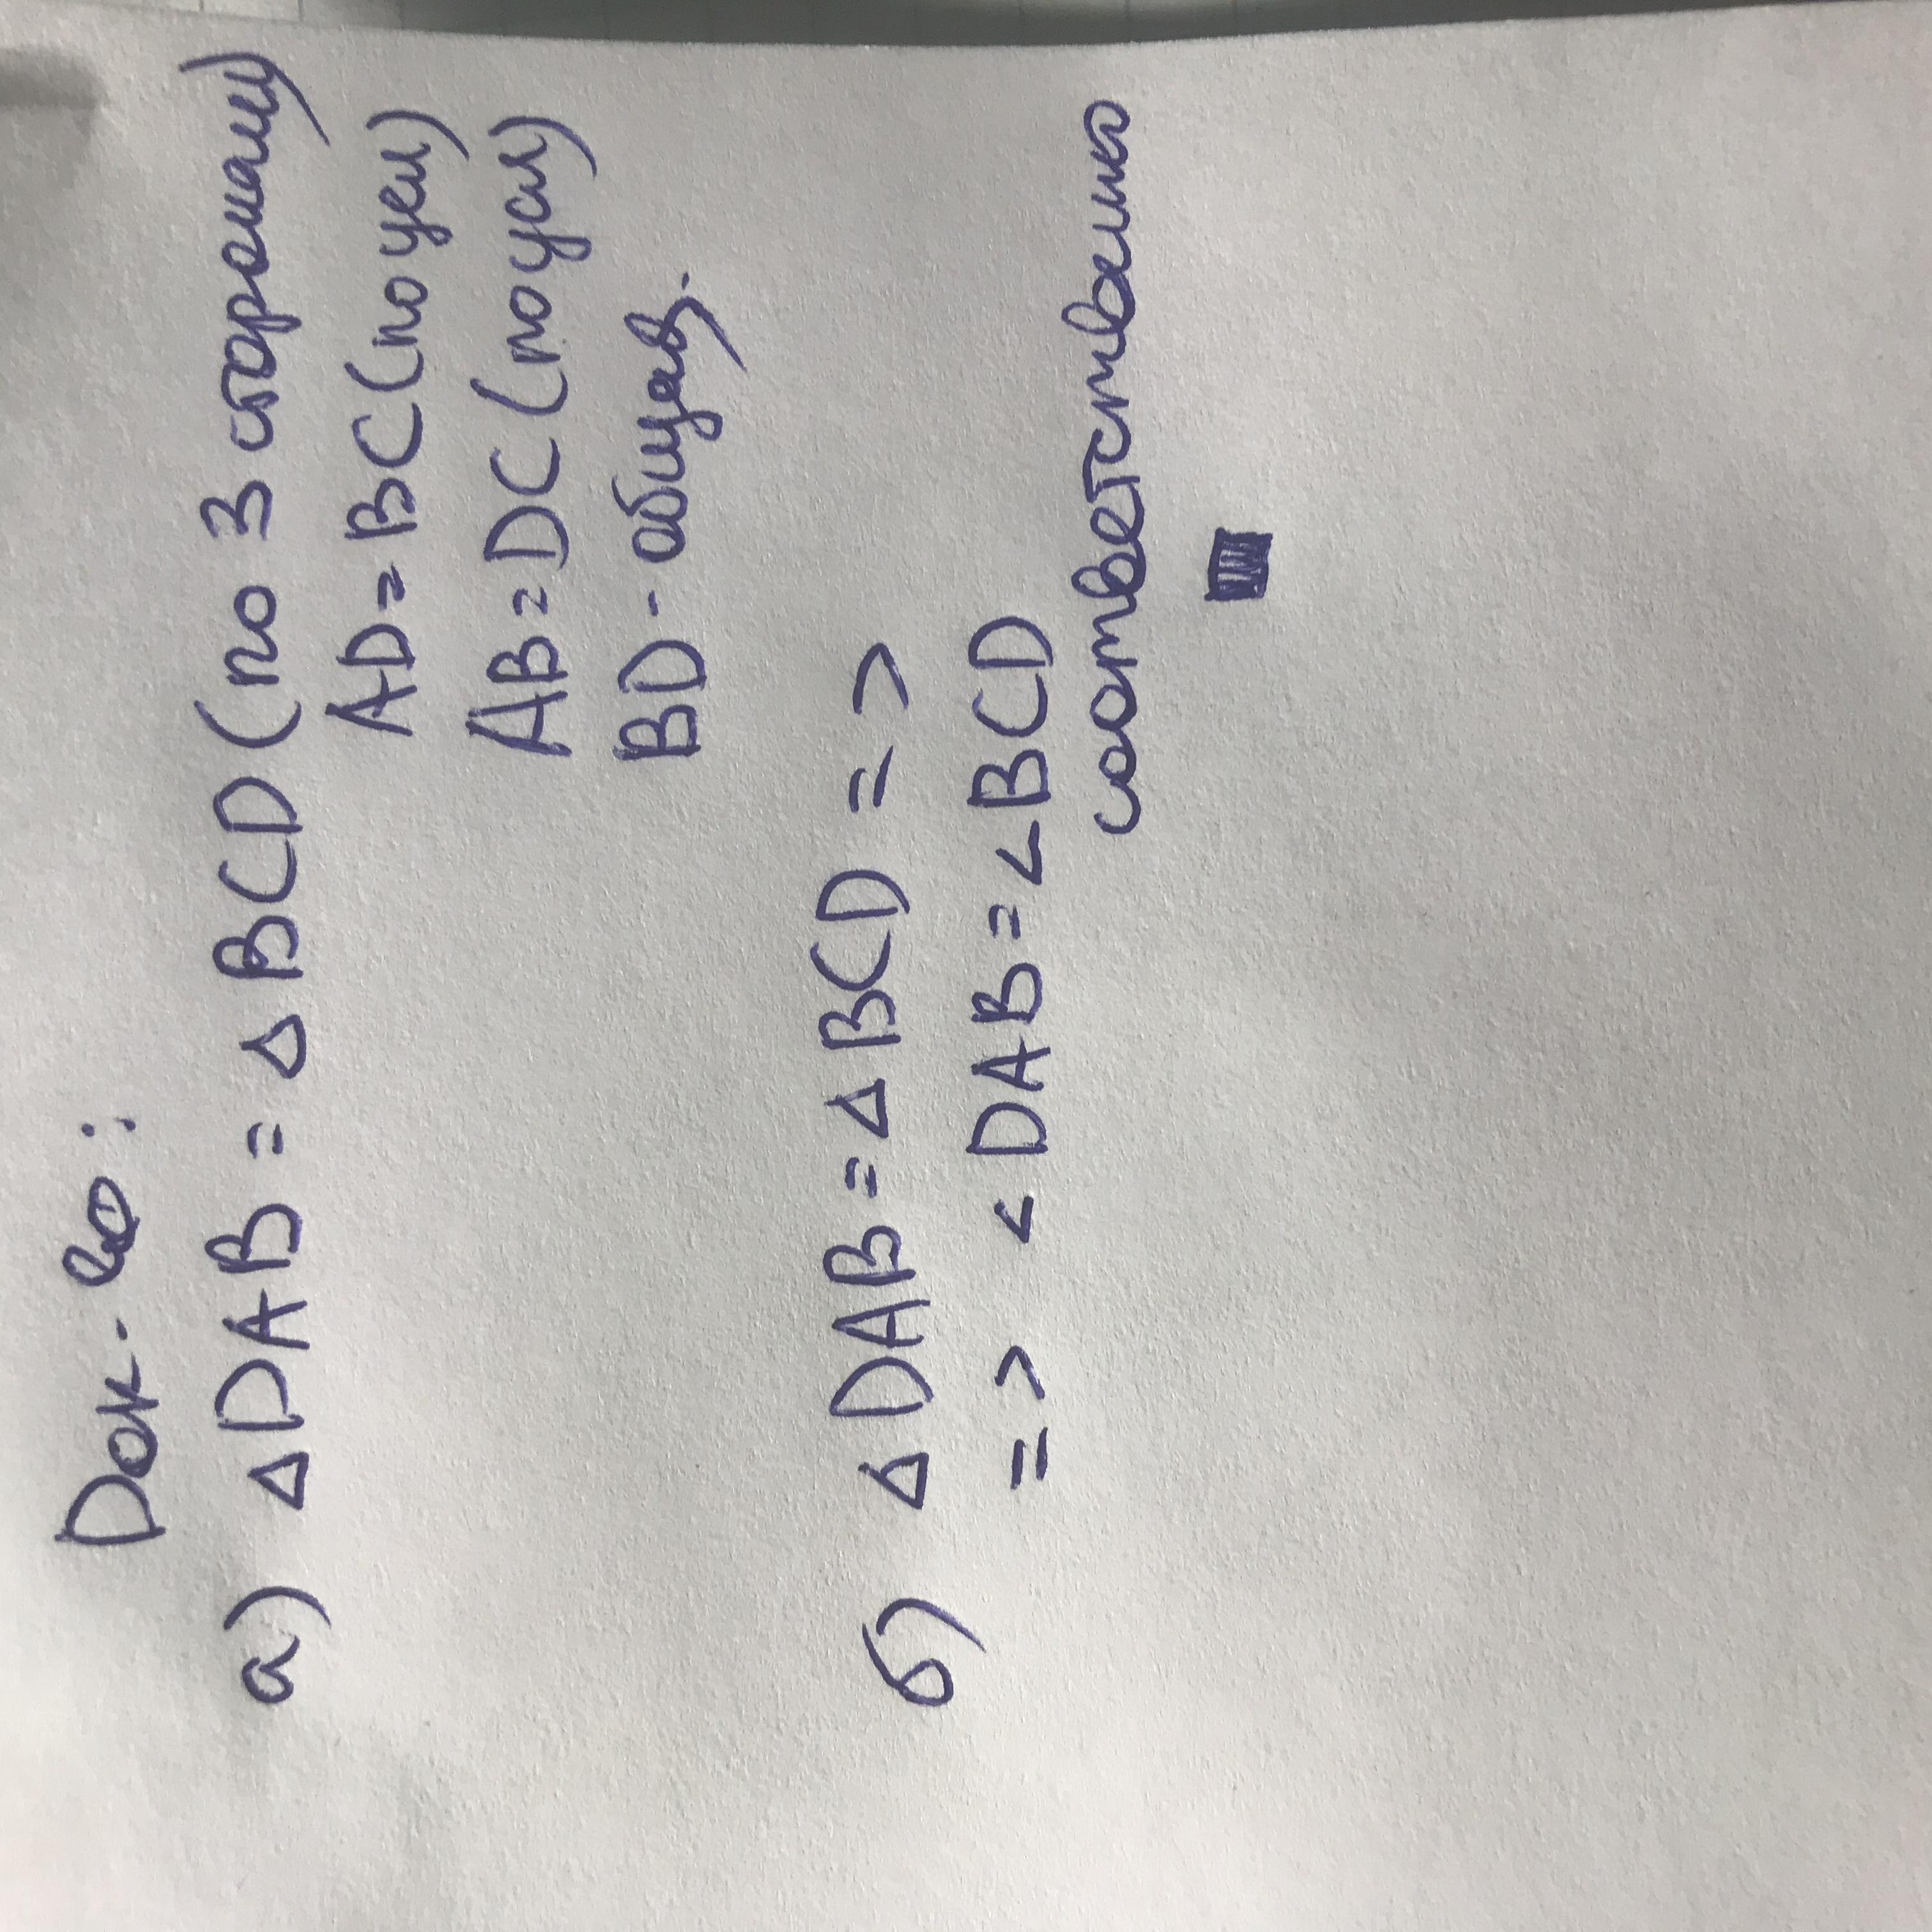 Док-во:
а) △DAB = △BCD (по 3 сторонам)
AD = BC (по усл)
AB = DC (по усл)
BD - общая.
б) △DAB = △BCD =>
=> <DAB = <BCD
соответственно